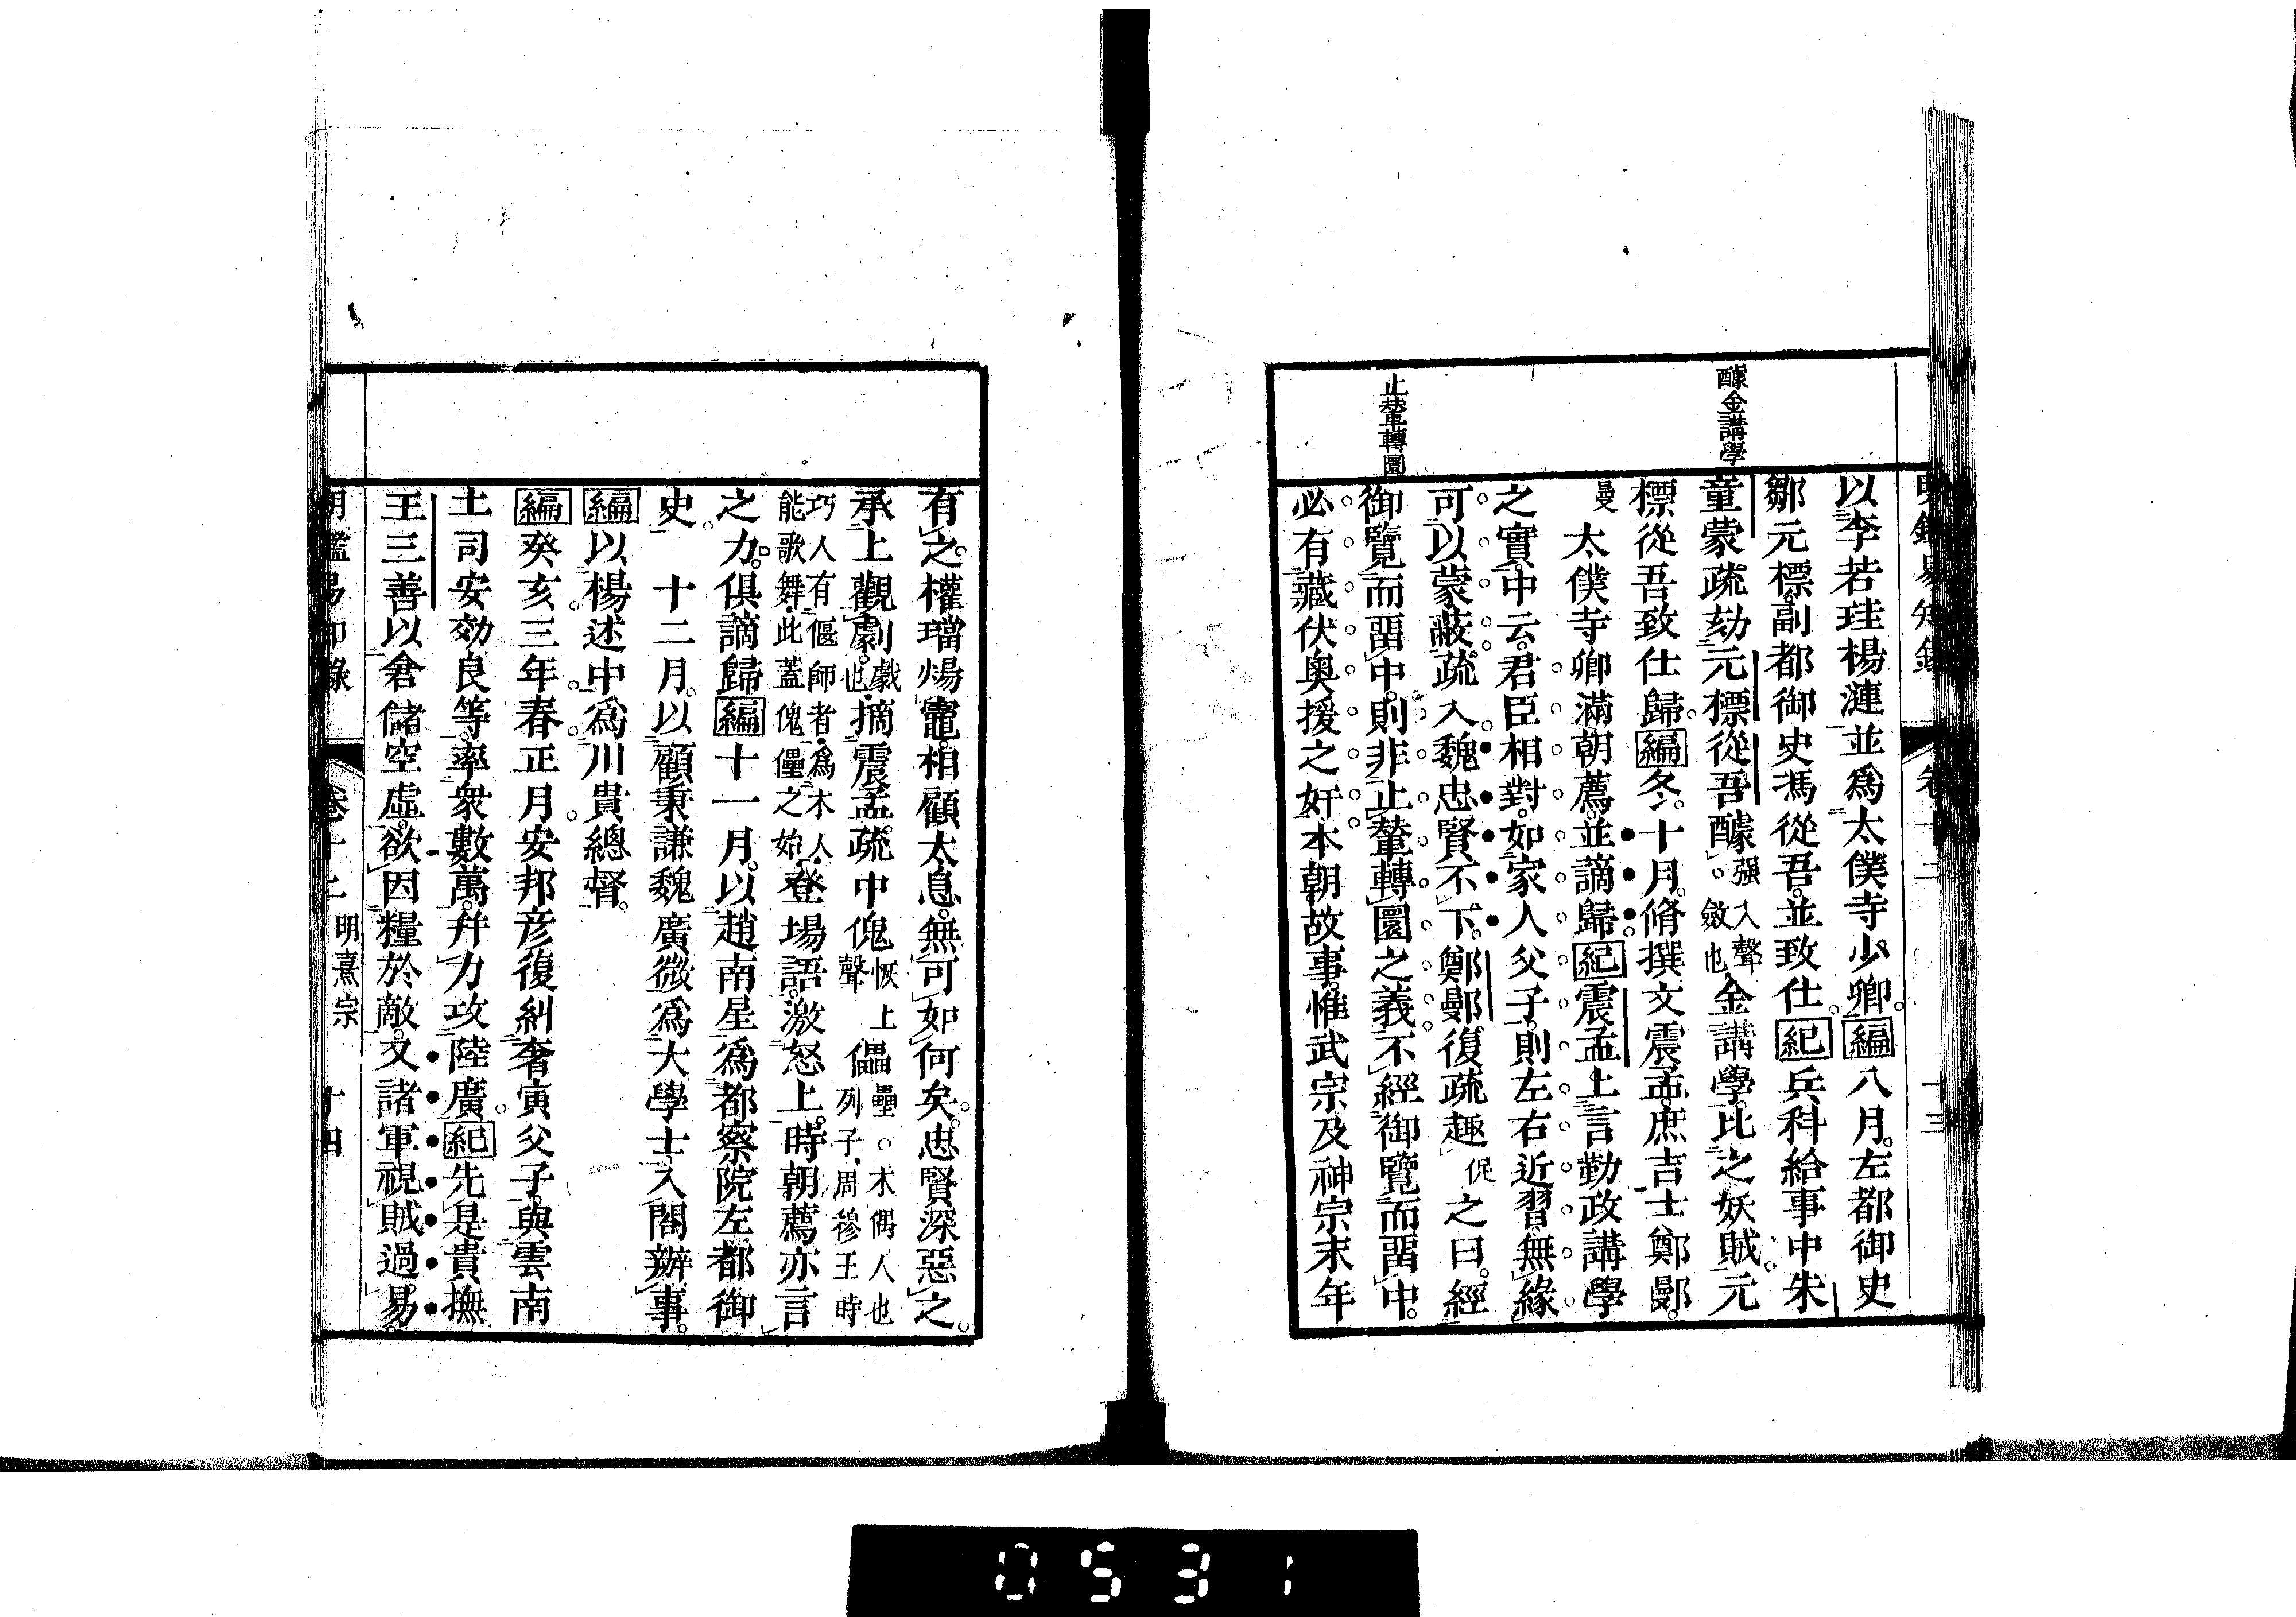 明鑑易知録 卷十二 十三
醵金講學
止輦轉圜
以李若珪楊漣並爲太僕寺少卿。編八月。左都御史
鄒元標。副都御史馮從吾。並致仕。紀兵科給事中朱
童蒙疏劾元標從吾醵强入聲。斂也。金講學。比之妖賊。元
標從吾致仕歸。編冬。十月。脩撰文震孟。庶吉士鄭鄤。
曼 太僕寺卿滿朝薦。並謫歸。紀震孟上言勤政講學
之實。中云。君臣相對。如家人父子。則左右近習。無緣
可以蒙蔽。疏入。魏忠賢不下。鄭鄤復疏趣促之曰。經
御覽而畱中。則非止輦轉圜之義。不經御覽而畱中。
必有藏伏奥援之奸。本朝故事。惟武宗及神宗末年
有之。權璫煬竈。相顧太息。無可如何矣。忠賢深惡之。
承上觀劇戲也。摘震孟疏中傀恢上聲儡壘。木偶人也。列子。周穆王時
巧人有偃師者。爲木人。能歌舞。此蓋傀儡之始。登場語。激怒上。時朝薦亦言
之力。俱謫歸。編十一月。以趙南星爲都察院左都御
史。 十二月。以顧秉謙魏廣微爲大學士。入閣辦事。
編以楊述中爲川貴總督。
編癸亥三年春正月。安邦彦復糾奢寅父子。與雲南
土司安効良等。率衆數萬。幷力攻陸廣。紀先是貴撫
王三善以倉儲空虛。欲因糧於敵。又諸軍視賊過易。
明鑑易知錄 卷十二 明熹宗 十四
0531